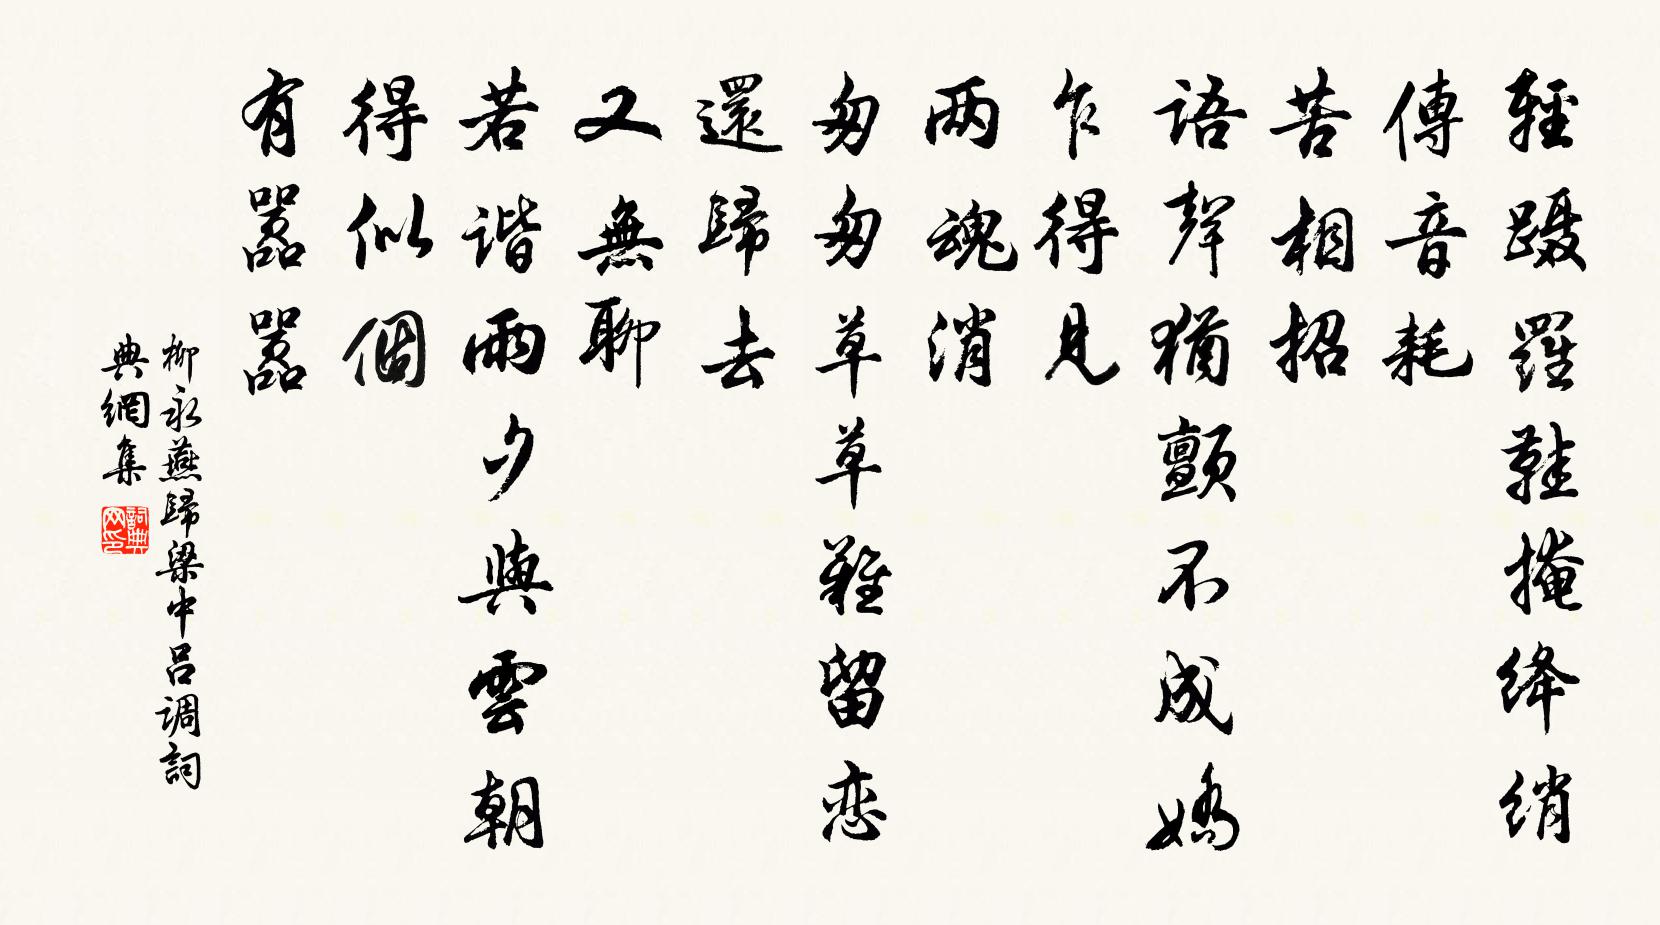 輕蹑羅鞋掩绛绡
傳音耗
苦相招
语聲猶颤不成嬌
乍得見
两魂消
匆匆草草難留恋
還歸去
又無聊
若谐雨夕與雲朝
得似個
有嚣嚣
柳永燕歸梁中吕调詞
典網集
詞典网印